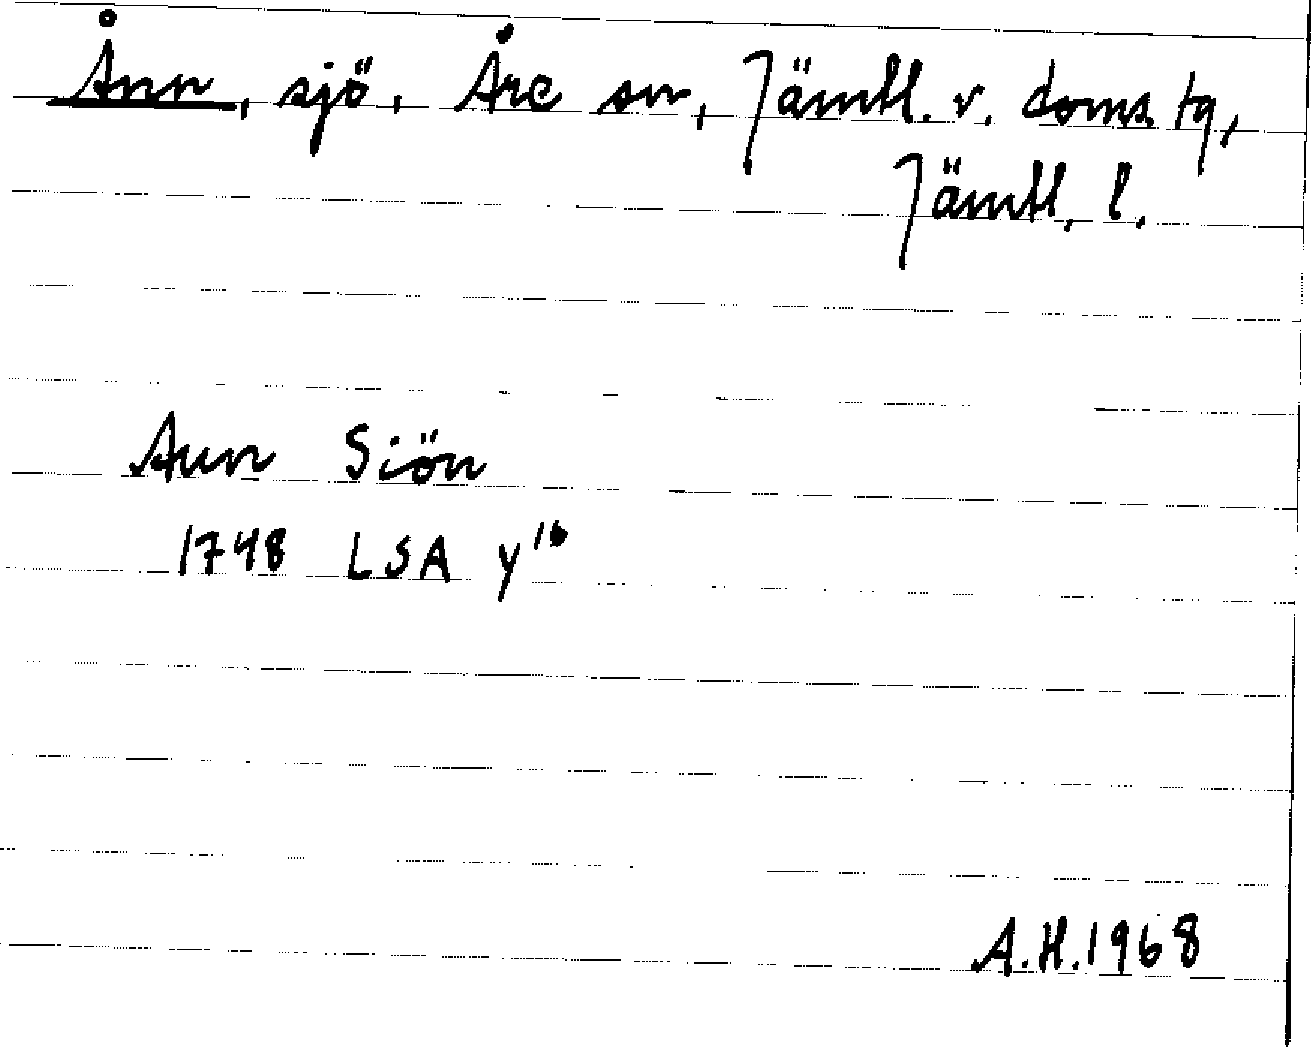 Ånn, sjö, Åre sn, Jämtl. v. doms. tg,
Jämtl. l.
Aun Siön
1748 LSA y 16
A.H. 1968